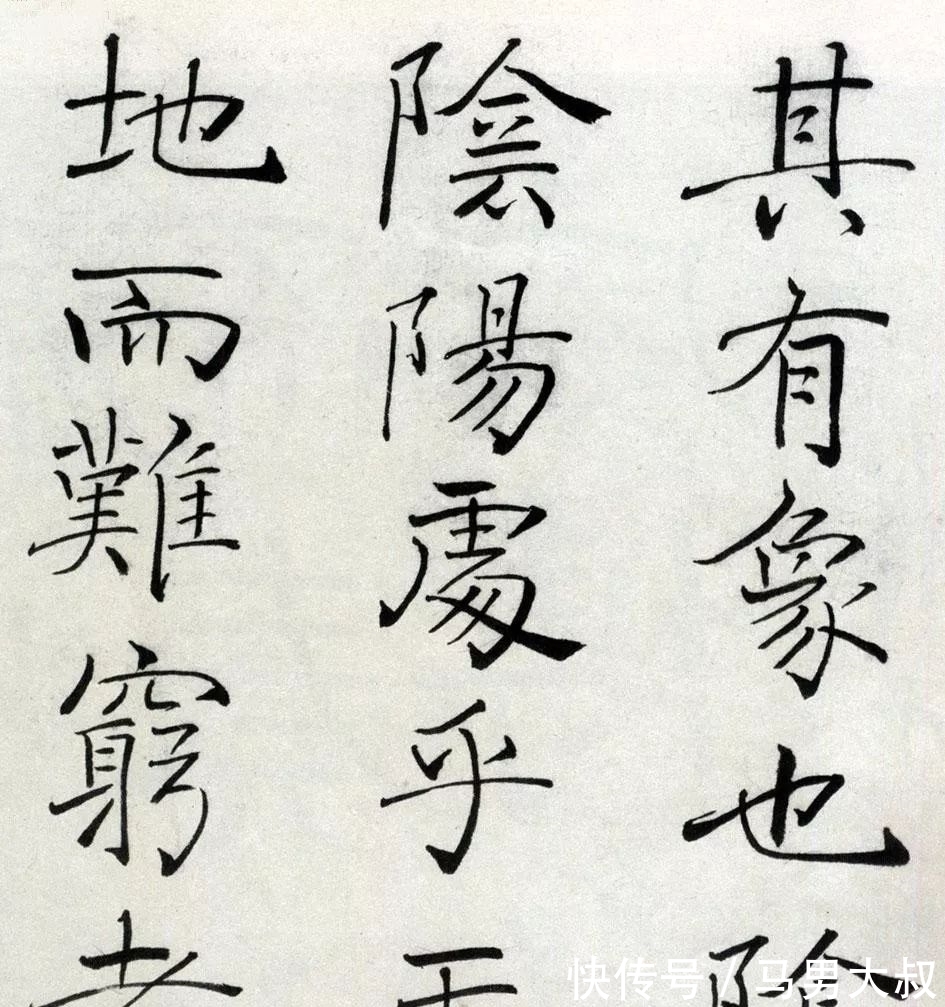 其有象也陰
陰陽處乎天
地而難窮者
快传号/马男大叔